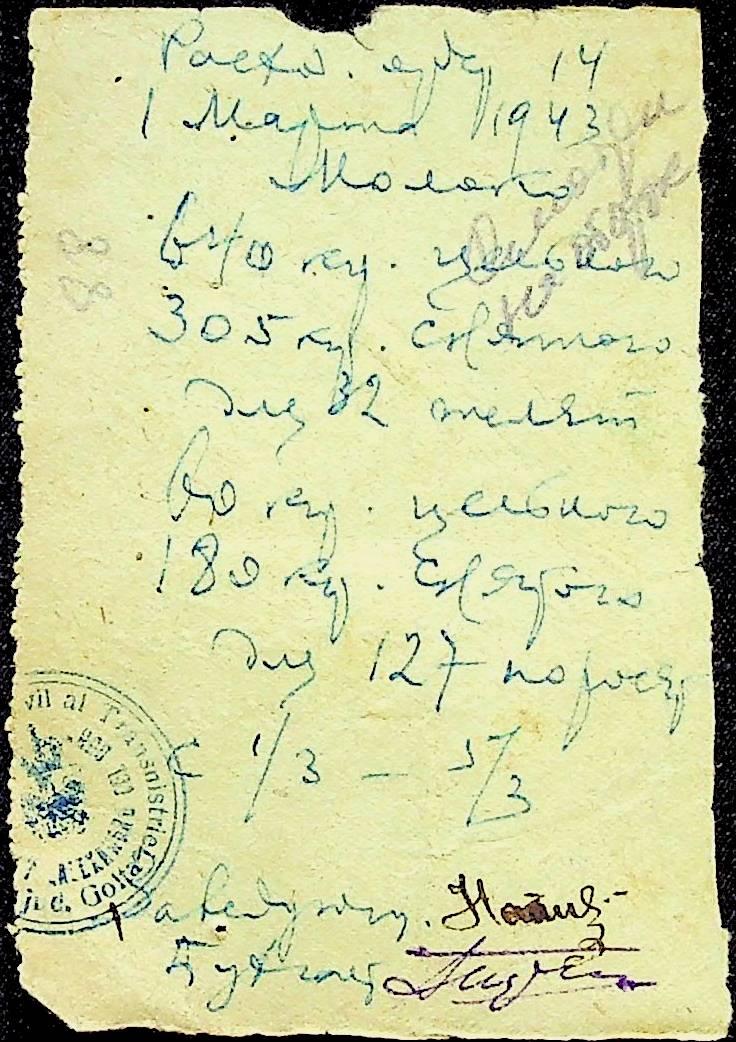 Расход. ордер 14
1 Марта 1943
Молоко
640 кг. цельного
305 кг. снятого
для 32 телят
60 кг. цельного
180 кг. снятого
для 127 порося
с 1/3 – 5/3
Заведующ.
88
vil al Transnistriei
jud. Golta